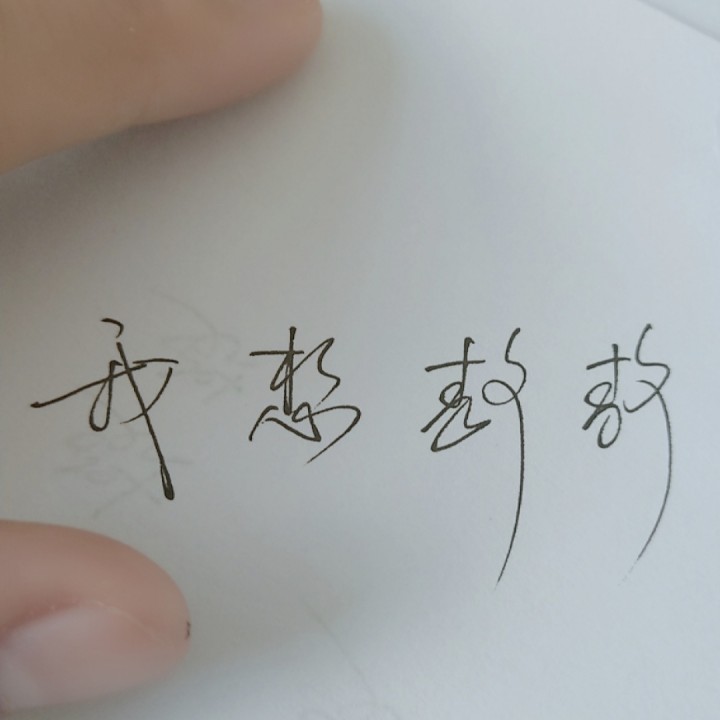 我想静静